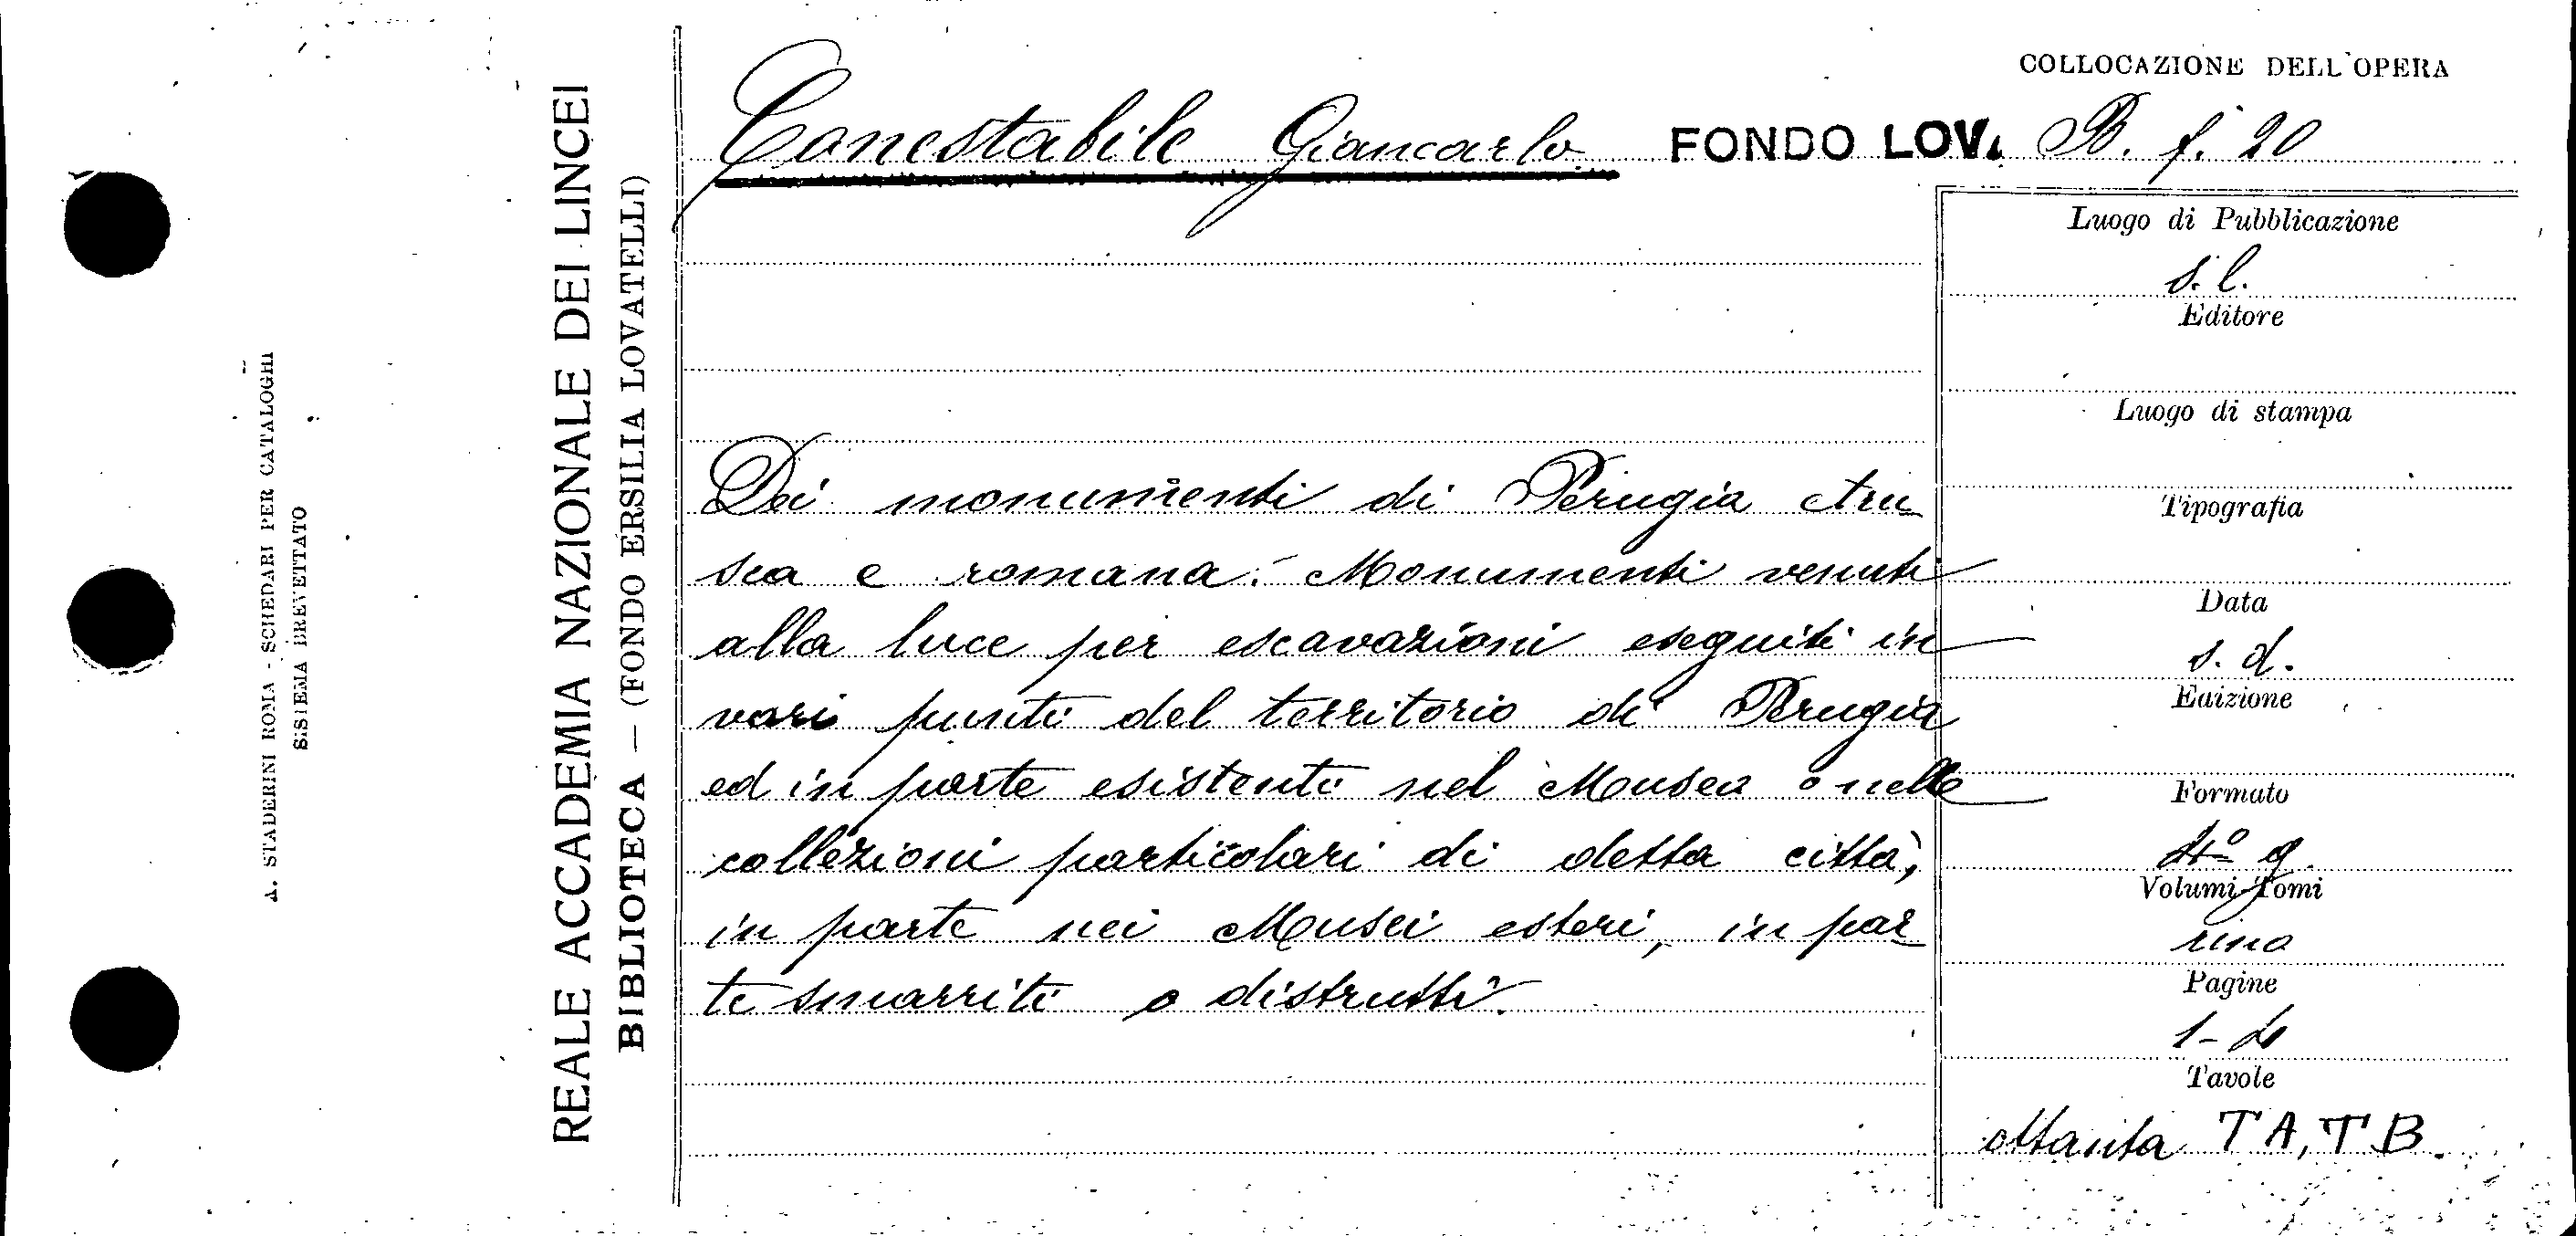 COLLOCAZIONE DELL'OPERA
Conestabile Giancarlo FONDO LOV. B. f. 20
Dei monumenti di Perugia etru-
sca e romana. Monumenti venuti
alla luce per escavazioni eseguiti in
vari punti del territorio di Perugia
ed in parte esistenti nel Museo o nelle
collezioni particolari di detta città,
in parte nei Musei esteri, in par-
te smarriti o distrutti.
Luogo di Pubblicazione
s. l.
Editore
Luogo di stampa
Tipografia
Data
s. d.
Edizione
Formato
4º g.
Volumi-Tomi
uno
Pagine
Tavole
ottanta TA, TB.
REALE ACCADEMIA NAZIONALE DEI LINCEI
BIBLIOTECA — (FONDO ERSILIA LOVATELLI)
A. STADERINI ROMA - SCHEDARI PER CATALOGHI
SISTEMA BREVETTATO